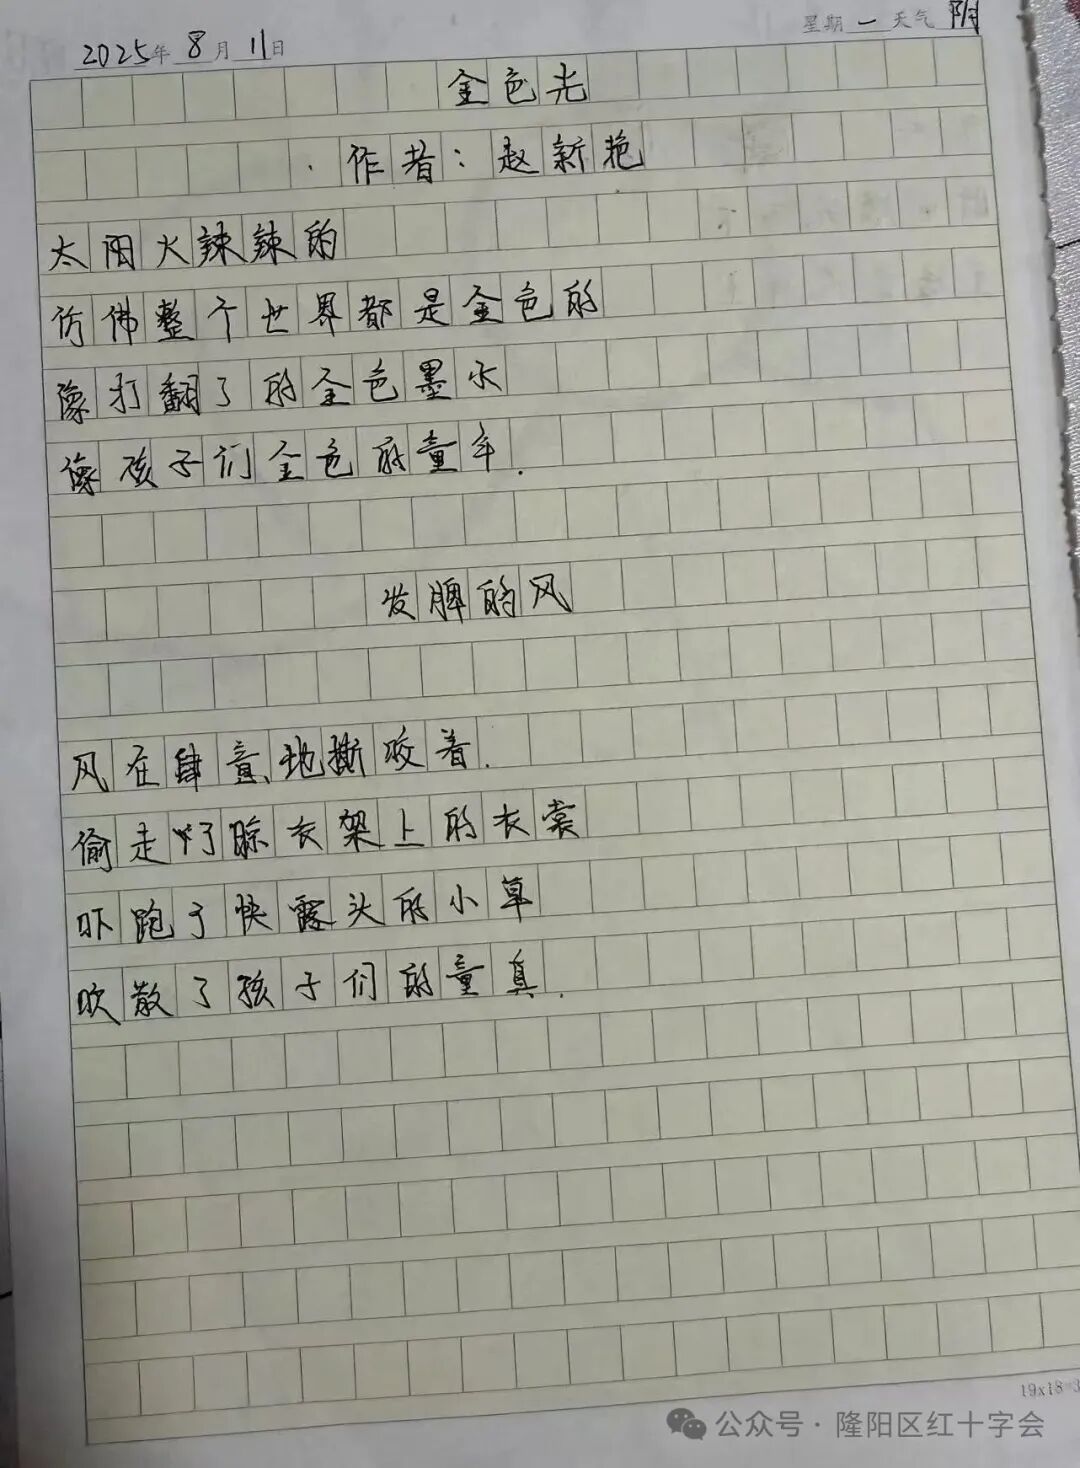 2025年8月11日 星期一 天气 阴
金色光
作者：赵新艳
太阳火辣辣的
仿佛整个世界都是金色的
像打翻了的金色墨水
像孩子们金色的童年.
发脾的风
风在肆意地撕咬着.
偷走了晾衣架上的衣裳
吓跑了快露头的小草
吹散了孩子们的童真.
19x18=3
公众号·隆阳区红十字会